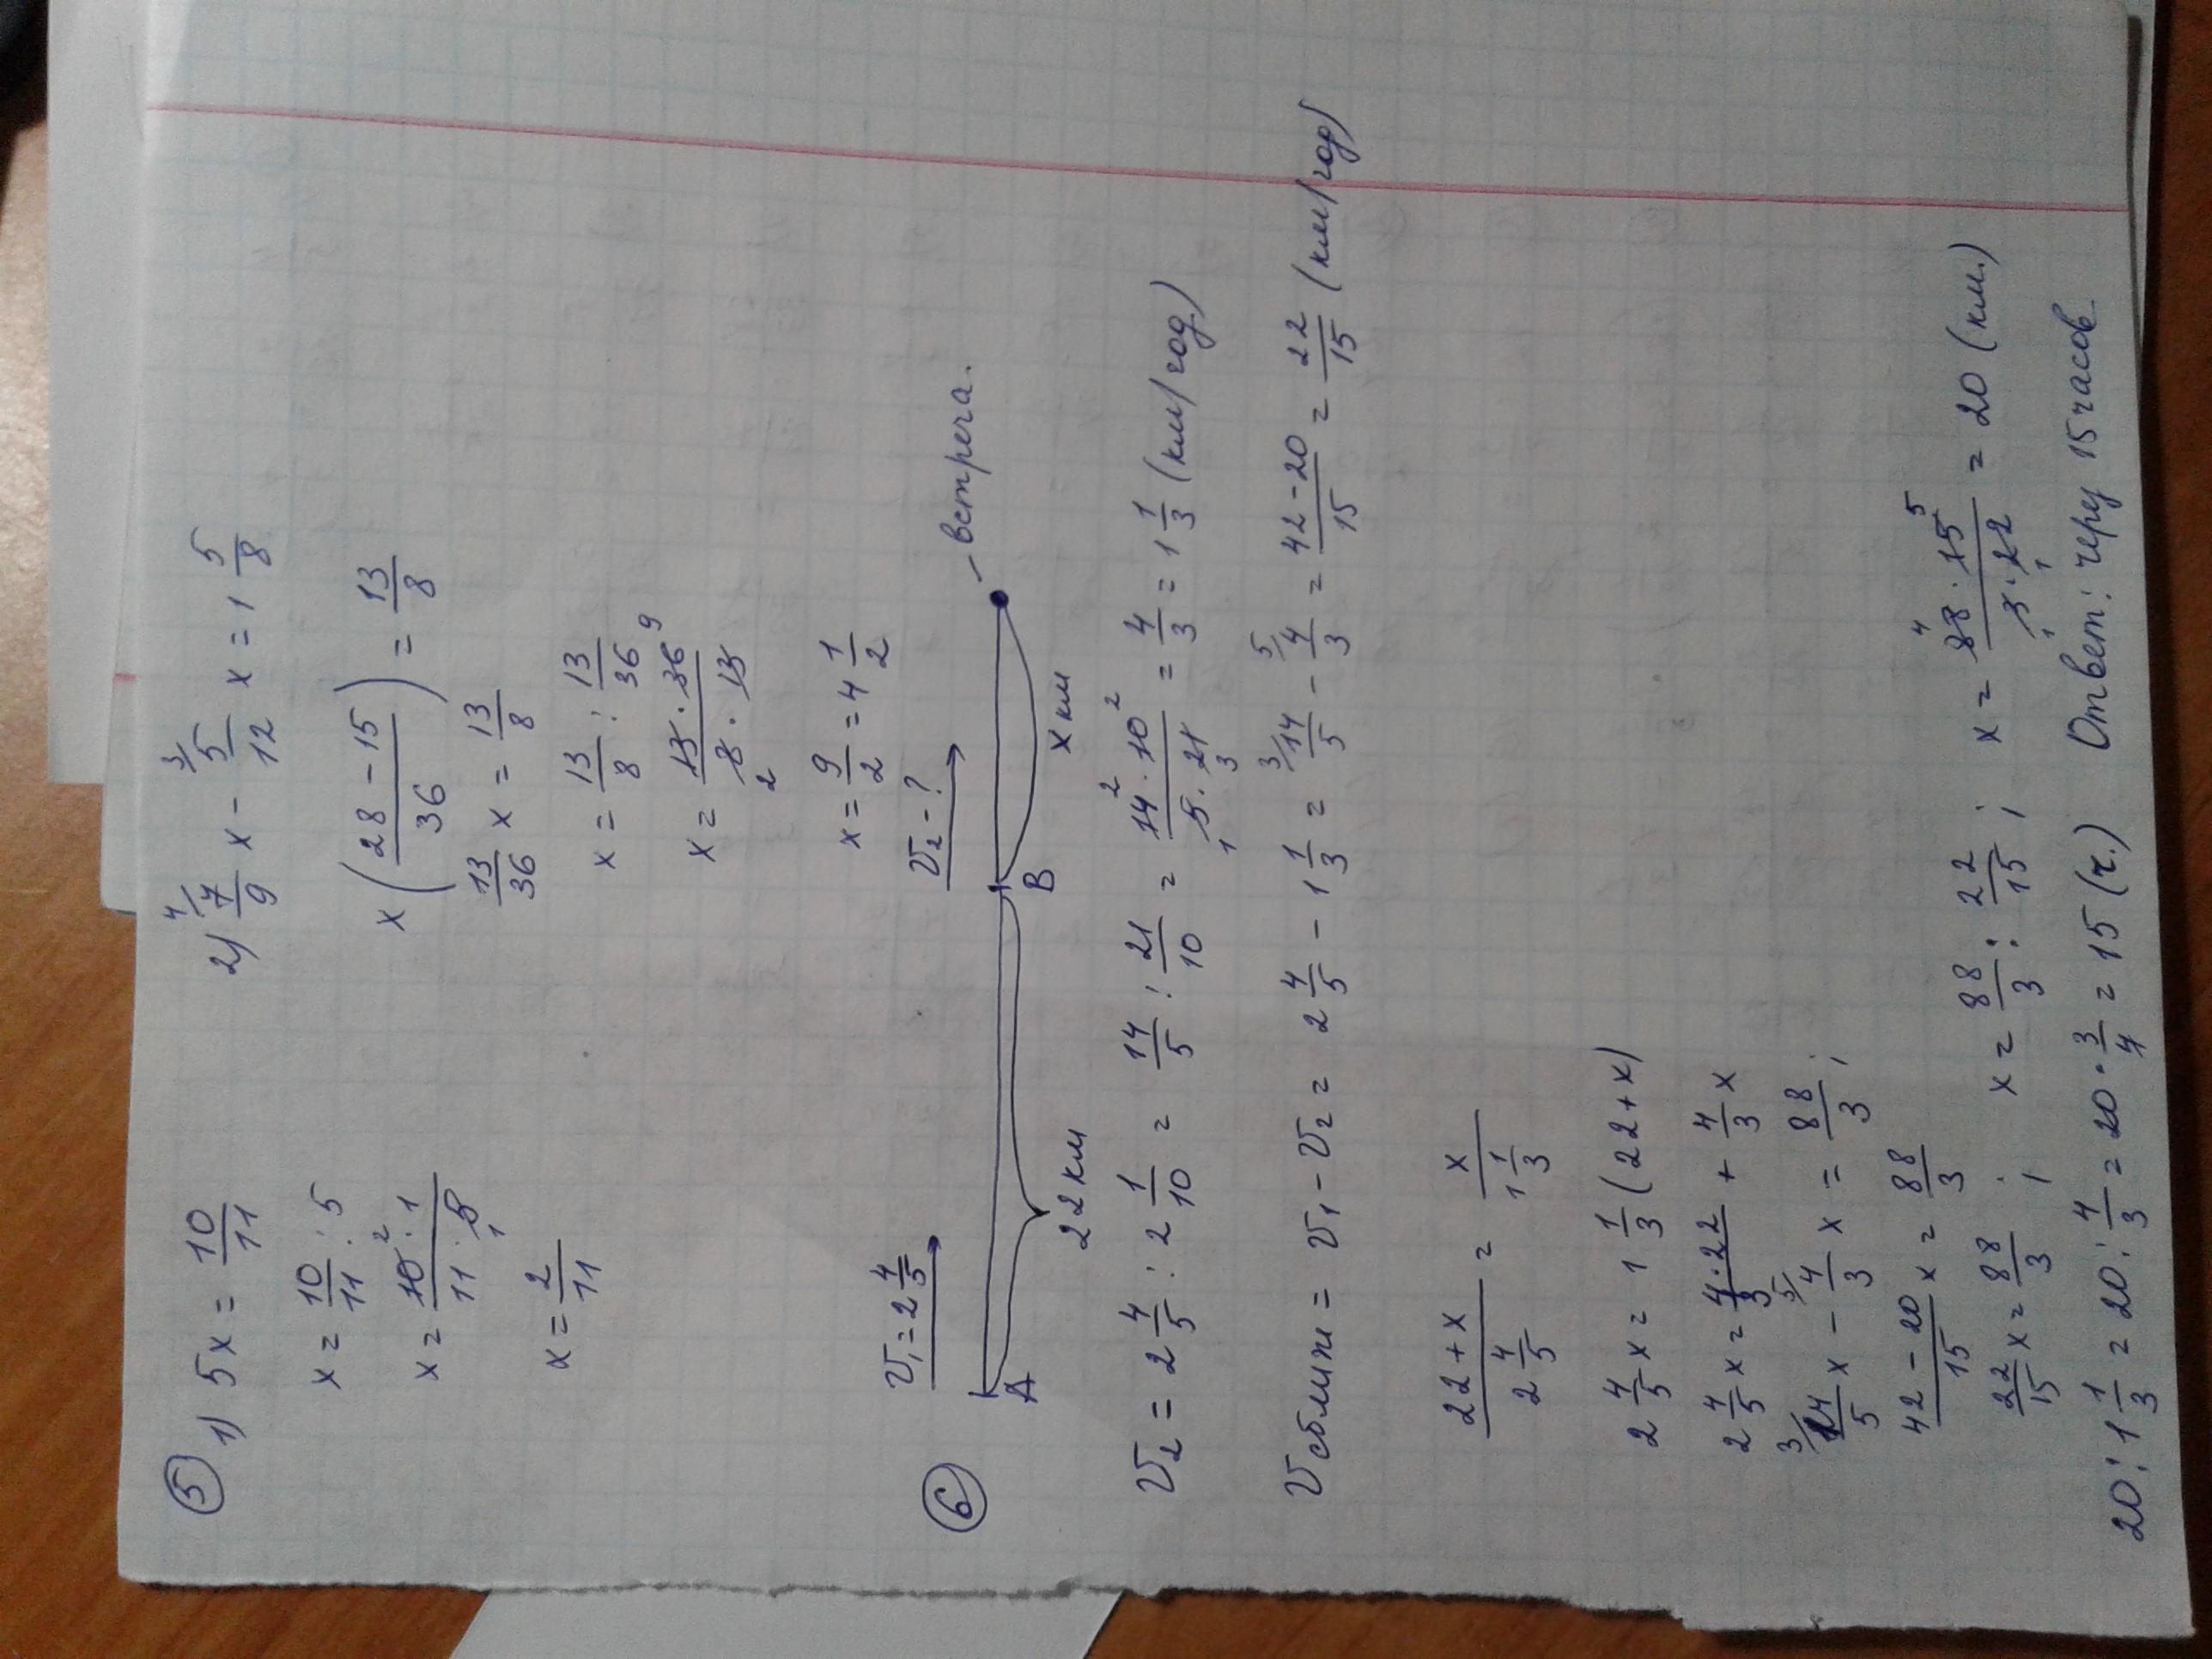 ⑤ 1) 5x = 10/11
x = 10/11 : 5
x = 10² · 1 / 11 · 5₁
x = 2/11
2) ⁴/ 7/9 x - ³/ 5/12 x = 1 5/8
x (28 - 15 / 36) = 13/8
13/36 x = 13/8
x = 13/8 : 13/36
x = 13 · 36⁹ / 8₂ · 13
x = 9/2 = 4 1/2
⑥ V₁ = 2 4/5
V₂ - ?
- встреча.
A
B
22 км
x км
V₂ = 2 4/5 : 2 1/10 = 14/5 : 21/10 = 14² · 10² / ₁5 · 21₃ = 4/3 = 1 1/3 (км/год)
Vсближ = V₁ - V₂ = 2 4/5 - 1 1/3 = ³/ 14/5 - ⁵/ 4/3 = 42 - 20 / 15 = 22/15 (км/год)
22 + x / 2 4/5 = x / 1 1/3
2 4/5 x = 1 1/3 (22 + x)
2 4/5 x = 4 · 22 / 3 + 4/3 x
³/ 14/5 x - ⁵/ 4/3 x = 88/3 ;
42 - 20 / 15 x = 88/3
22/15 x = 88/3 ; x = 88/3 : 22/15 ; x = 88⁴ · 15⁵ / ₁3 · 22₁ = 20 (км.)
20 : 1 1/3 = 20 : 4/3 = 20 · 3/4 = 15 (ч.) Ответ: через 15 часов